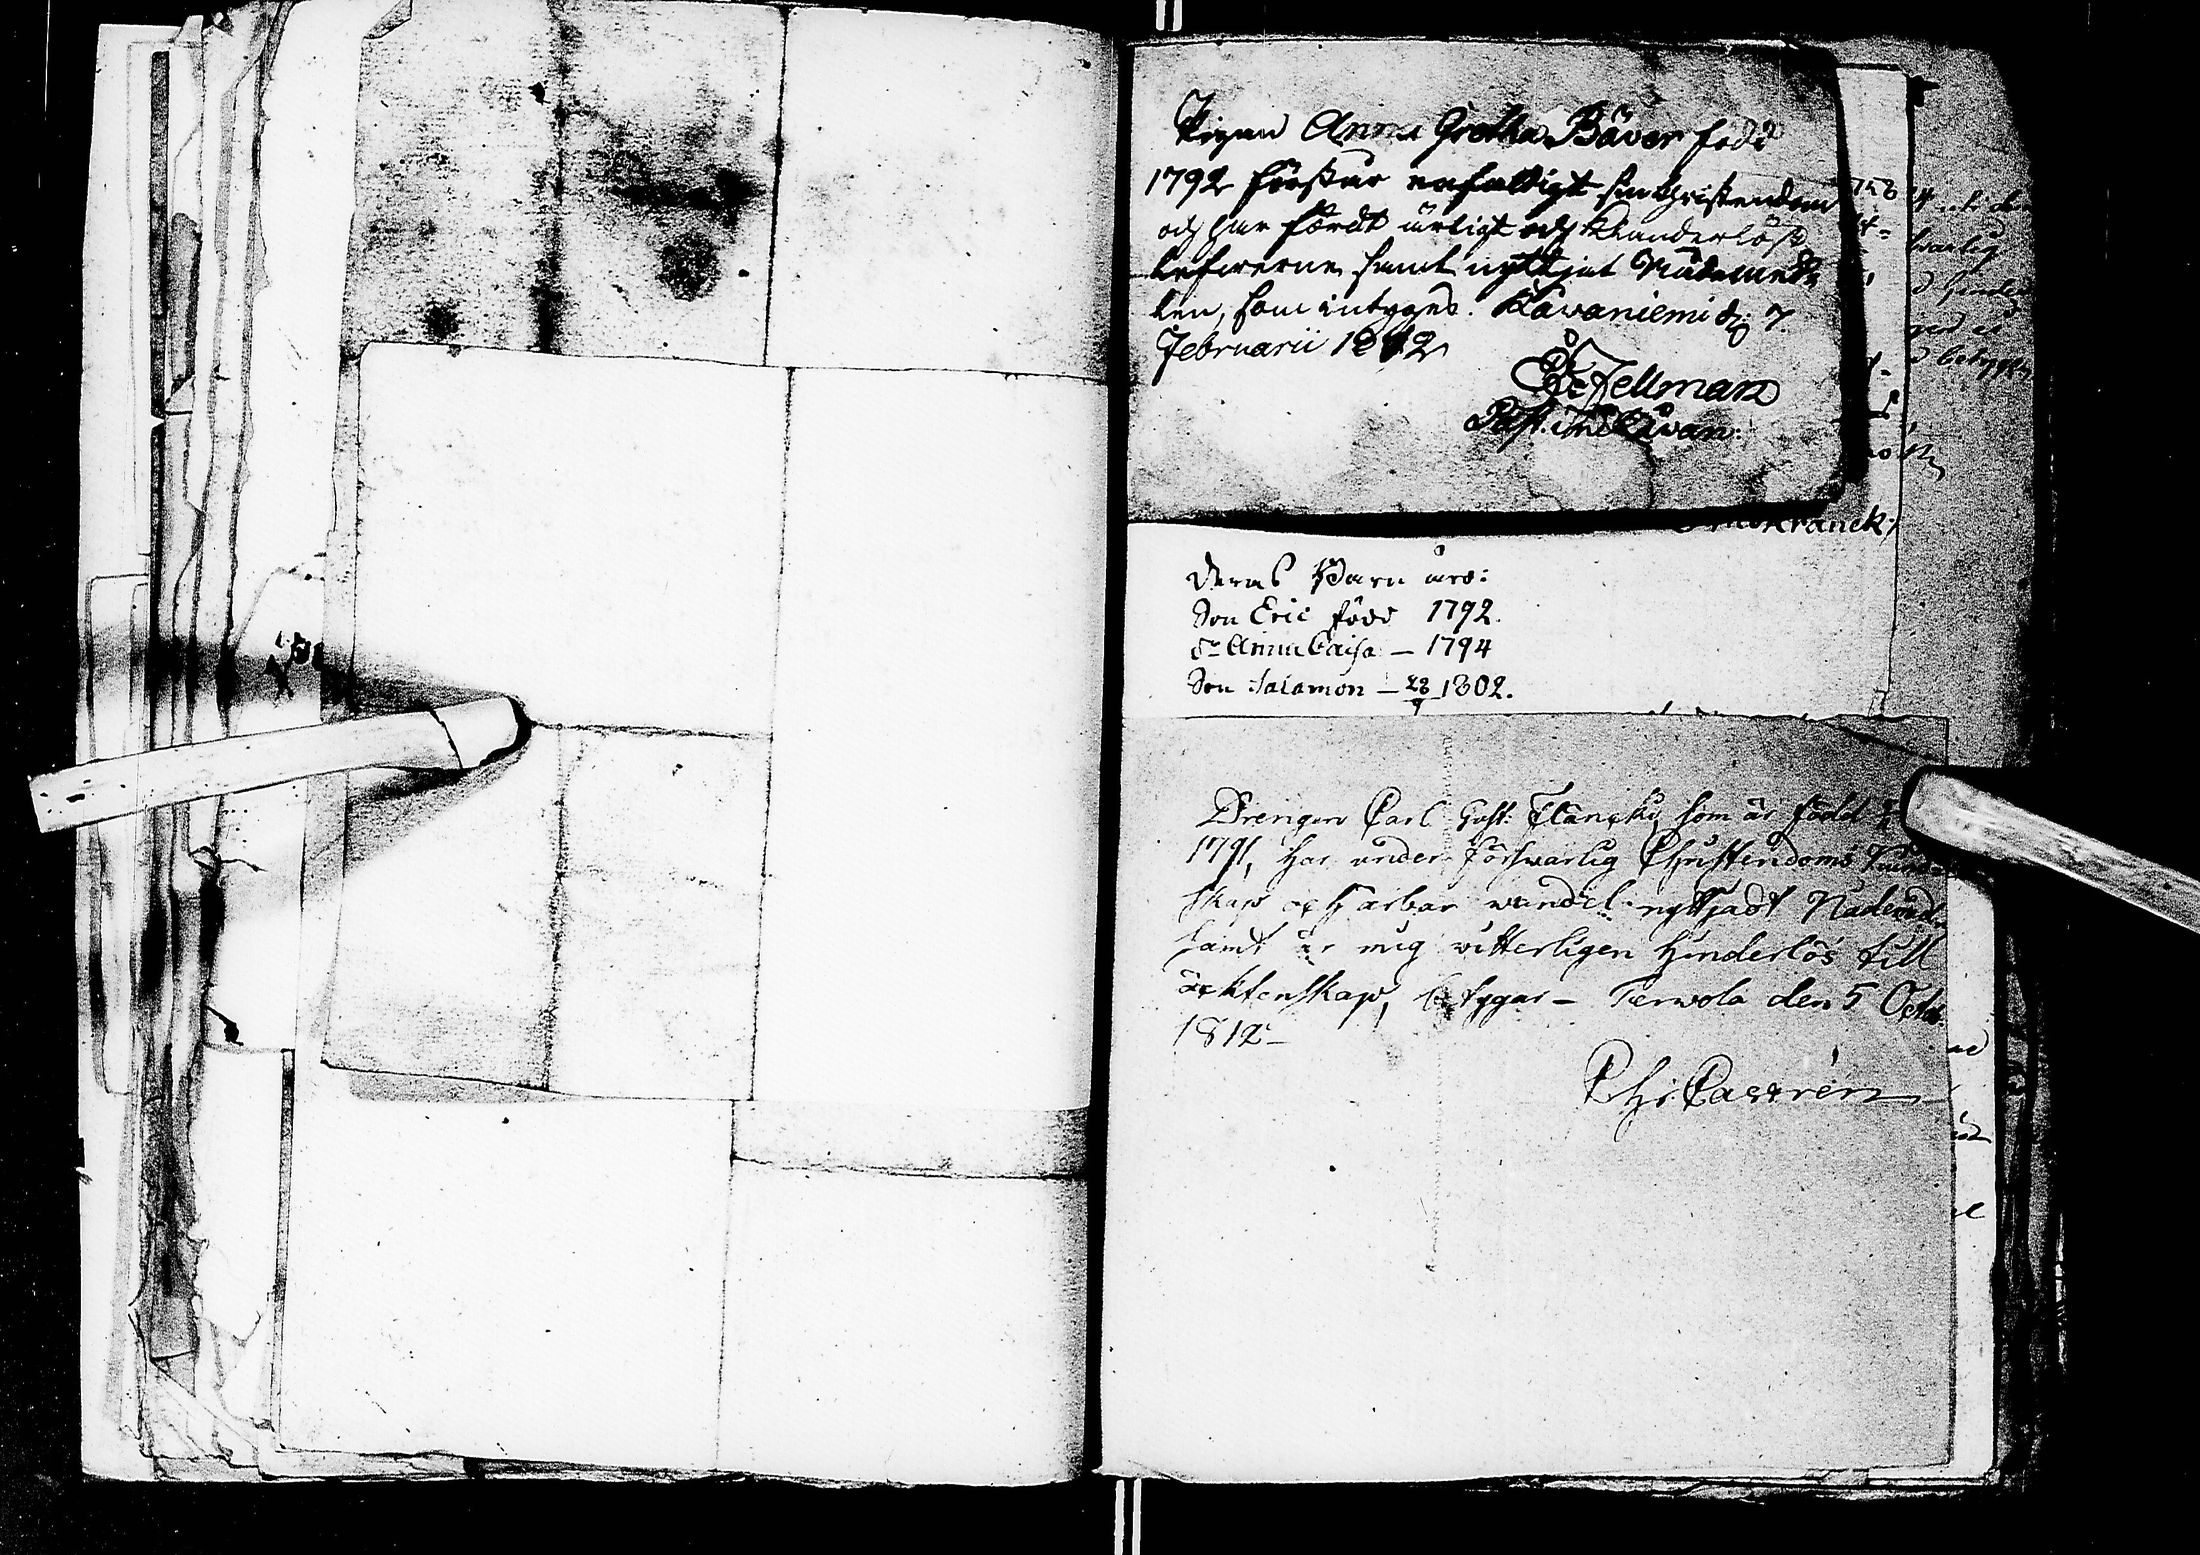 Pigan Anna Gretha Bäver född
1792 förstår enfaldigt sin Christendom
och har fördt ärligt och klanderlöst
lefwerne samt nyttjat Nådemed-
len, som intygas. Råvaniemi d. 7
Februarii 1812
Fellman
Past. in Råvan:
Deras Barn äro:
Son Eric född 1792.
Dr Anna Caisa — 1794
Son Salamon — 28/9 1802.
Drengen Carl Gust: Flancki, som är född
1791, har under försvarlig Christendoms Kund-
skap och ärbar wandel nyttjadt Nådemed
samt är mig witterligen hinderlös till
äcktenskap, betygar — Terwola den 5 Octob.
1812 —
Chr: Castrén